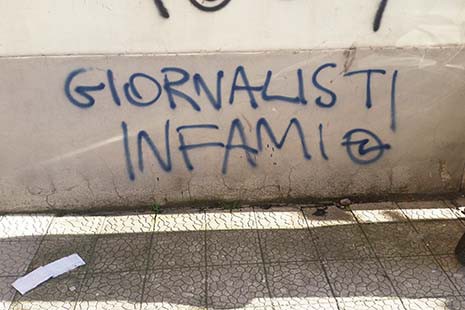 GIORNALISTI
INFAMI